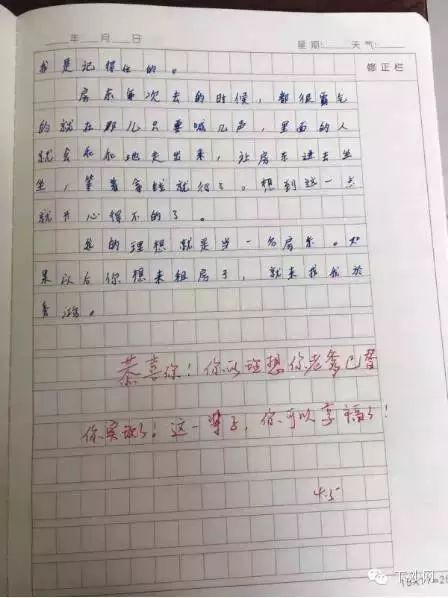 年 月 日 星期: 天气:
修正栏
我是记得住的。
房东每次去的时候，都很霸气
的就在那儿只要喊几声，里面的人
就会和和地走出来，让房东进去坐
坐，等着拿钱就行了。想到这一点
就开心得不的了。
我的理想就是当一名房东。如
果以后你想来租房子，就来找我
恭喜你！你的理想你老爸已替
你实现了！这一辈子，你可以享福了！
4.5
下沙网